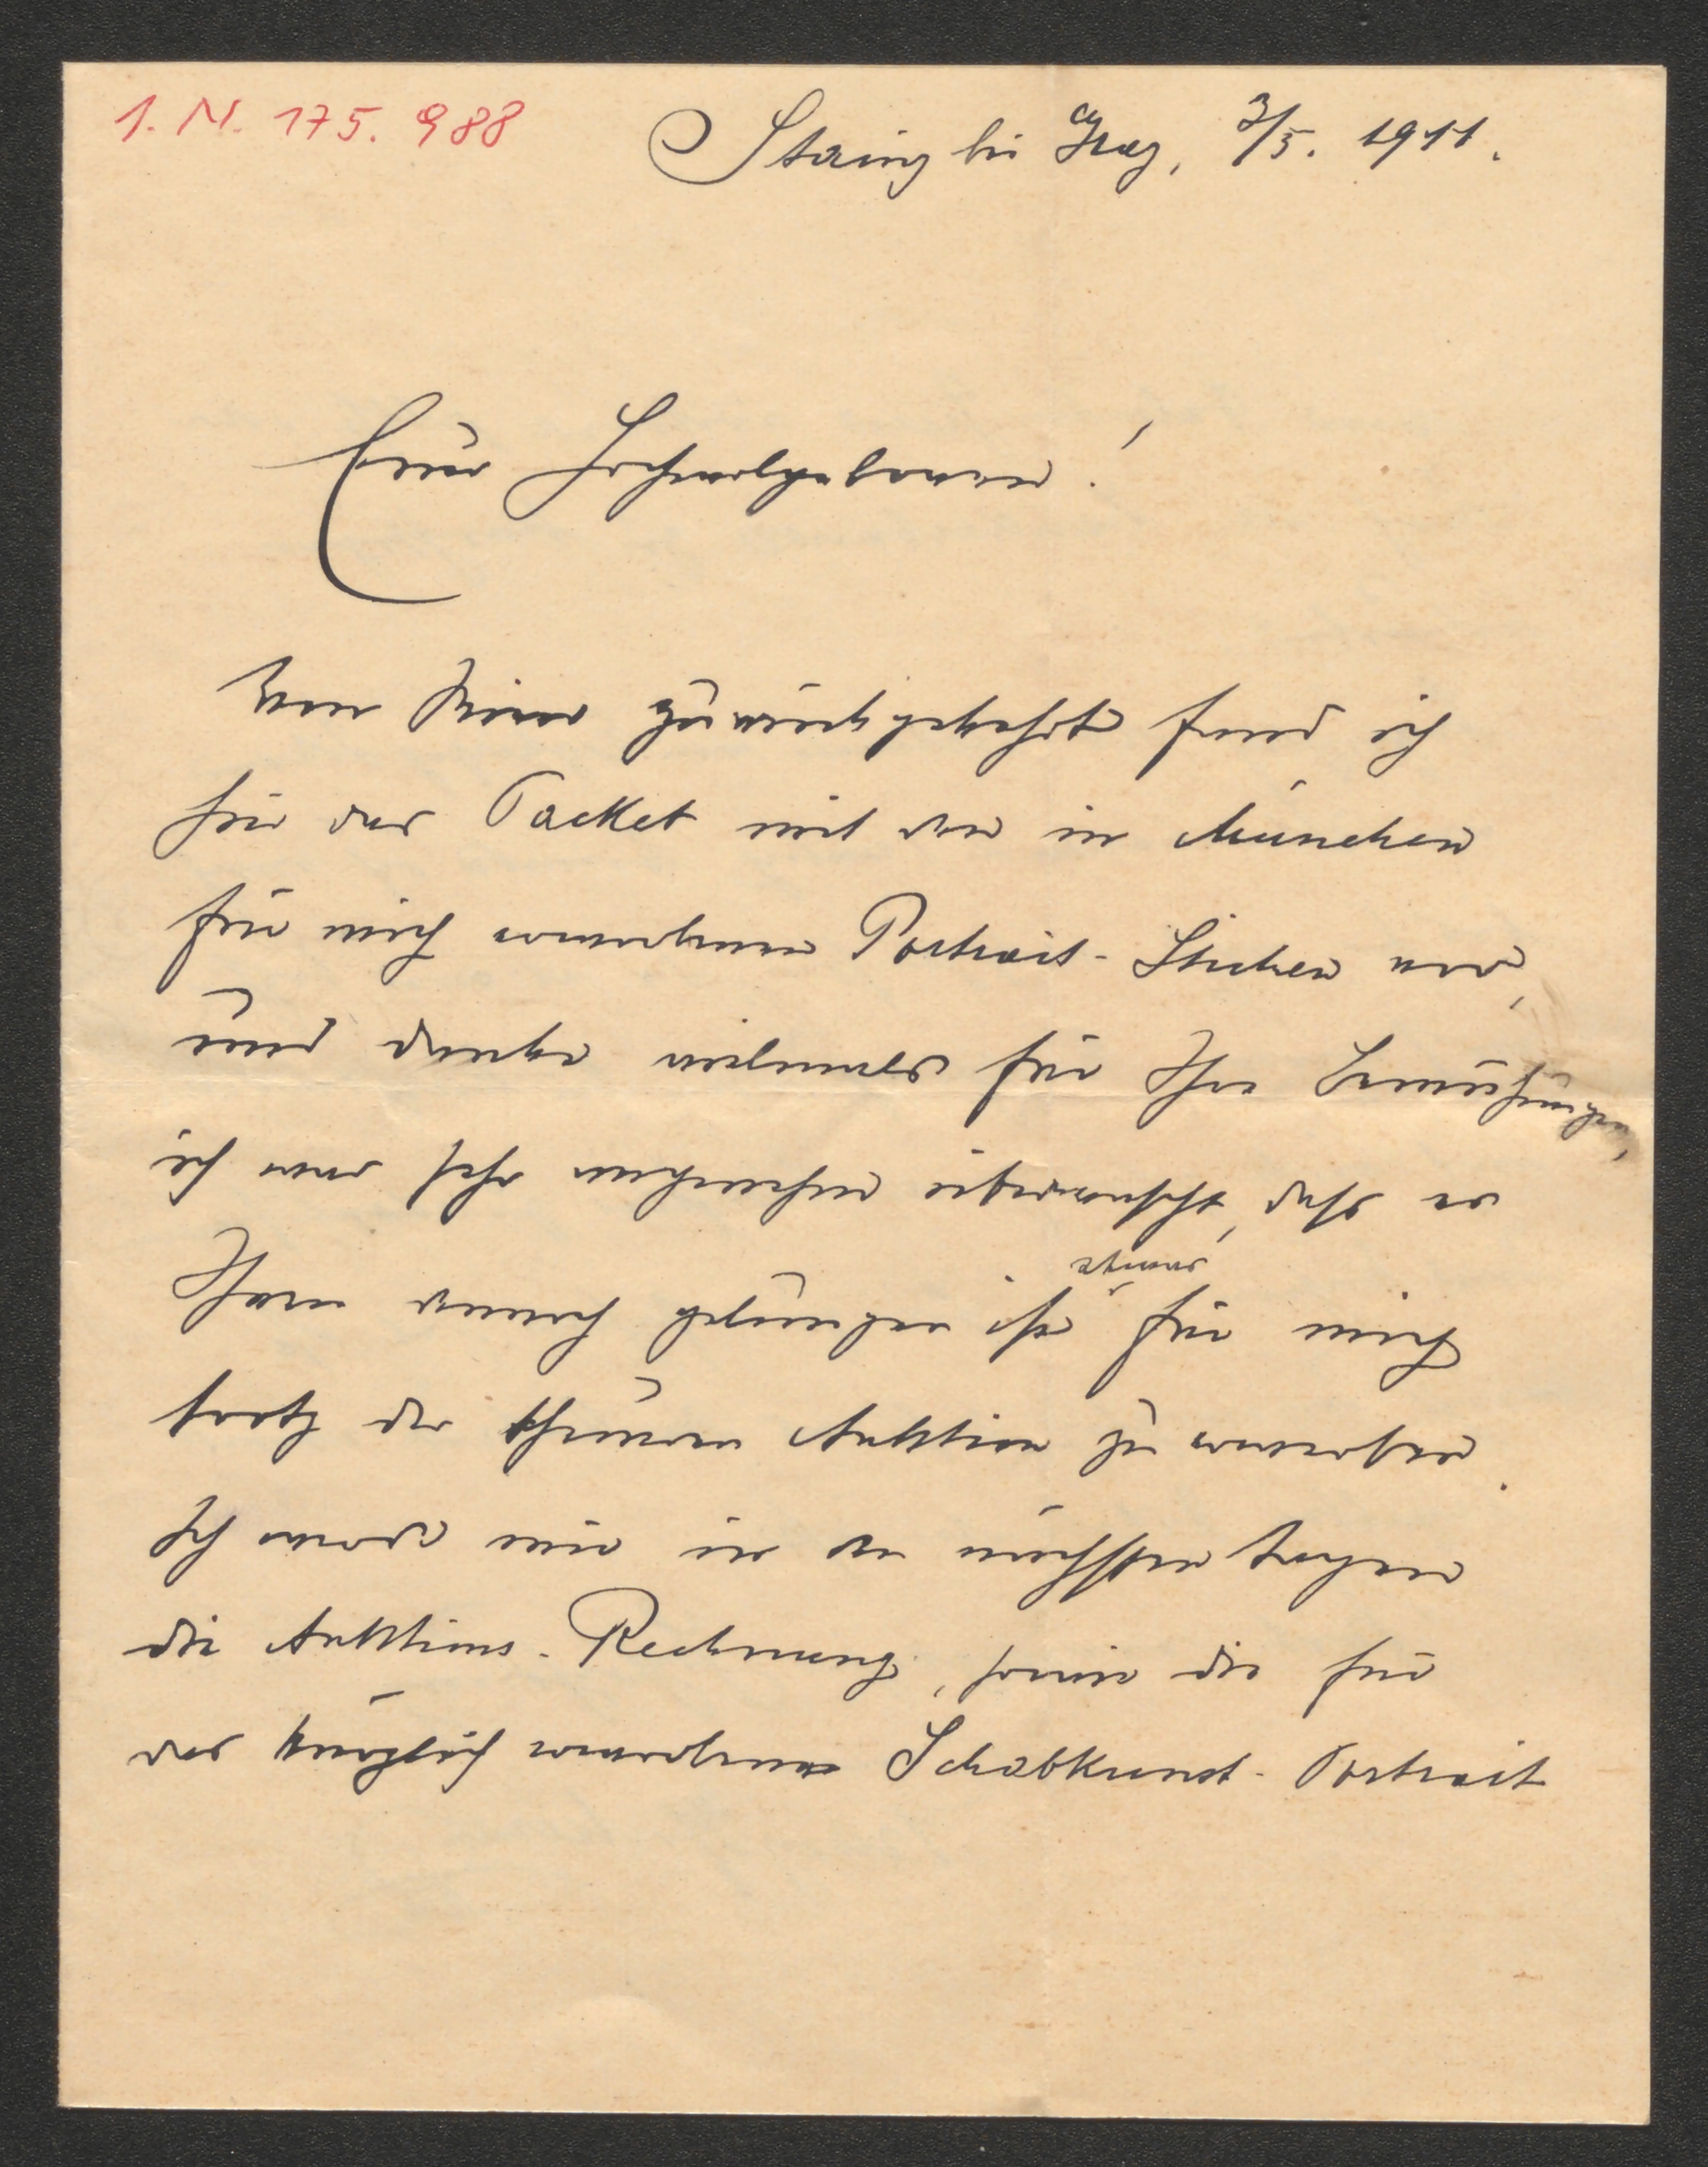 I. N. 175.988
Stainz bei Graz, 3/5. 1911.
Euer Hochwolgeboren!
Von Wien zurückgekehrt fand ich
hier das Packet mit den in München
für mich erworbenen Portrait-Stichen vor,
und danke vielmals für Ihre Bemühungen,
ich war sehr angenehm überrascht, dass es
Ihnen dennoch gelungen ist etwas für mich
trotz der theuren Auktion zu erwerben.
Ich werde mir in den nächsten Tagen
die Auktions-Rechnung, sowie die für
das kürzlich erworbene Schabkunst-Portrait